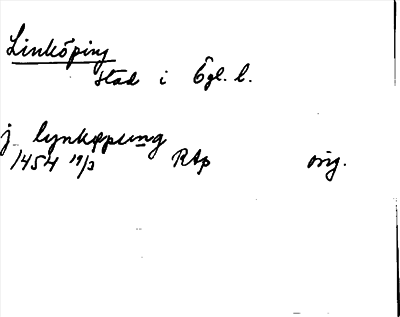 Linköping
stad i Ögl. l.
j lynkøpung
1454 19/3 RAp orig.